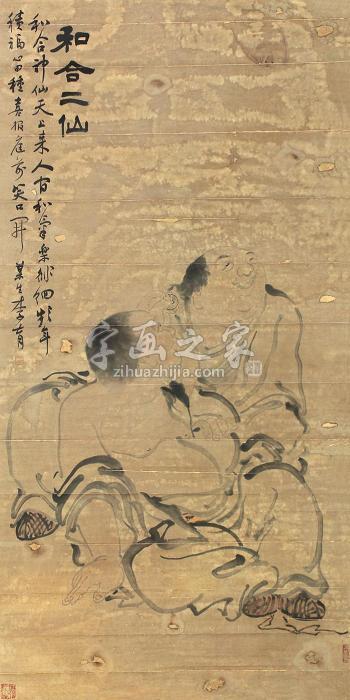 和合二仙
和合神仙天上来人间和气乐
年
积福当种喜报庭前笑口开 某生李育
字画之家
zihuazhijia.com